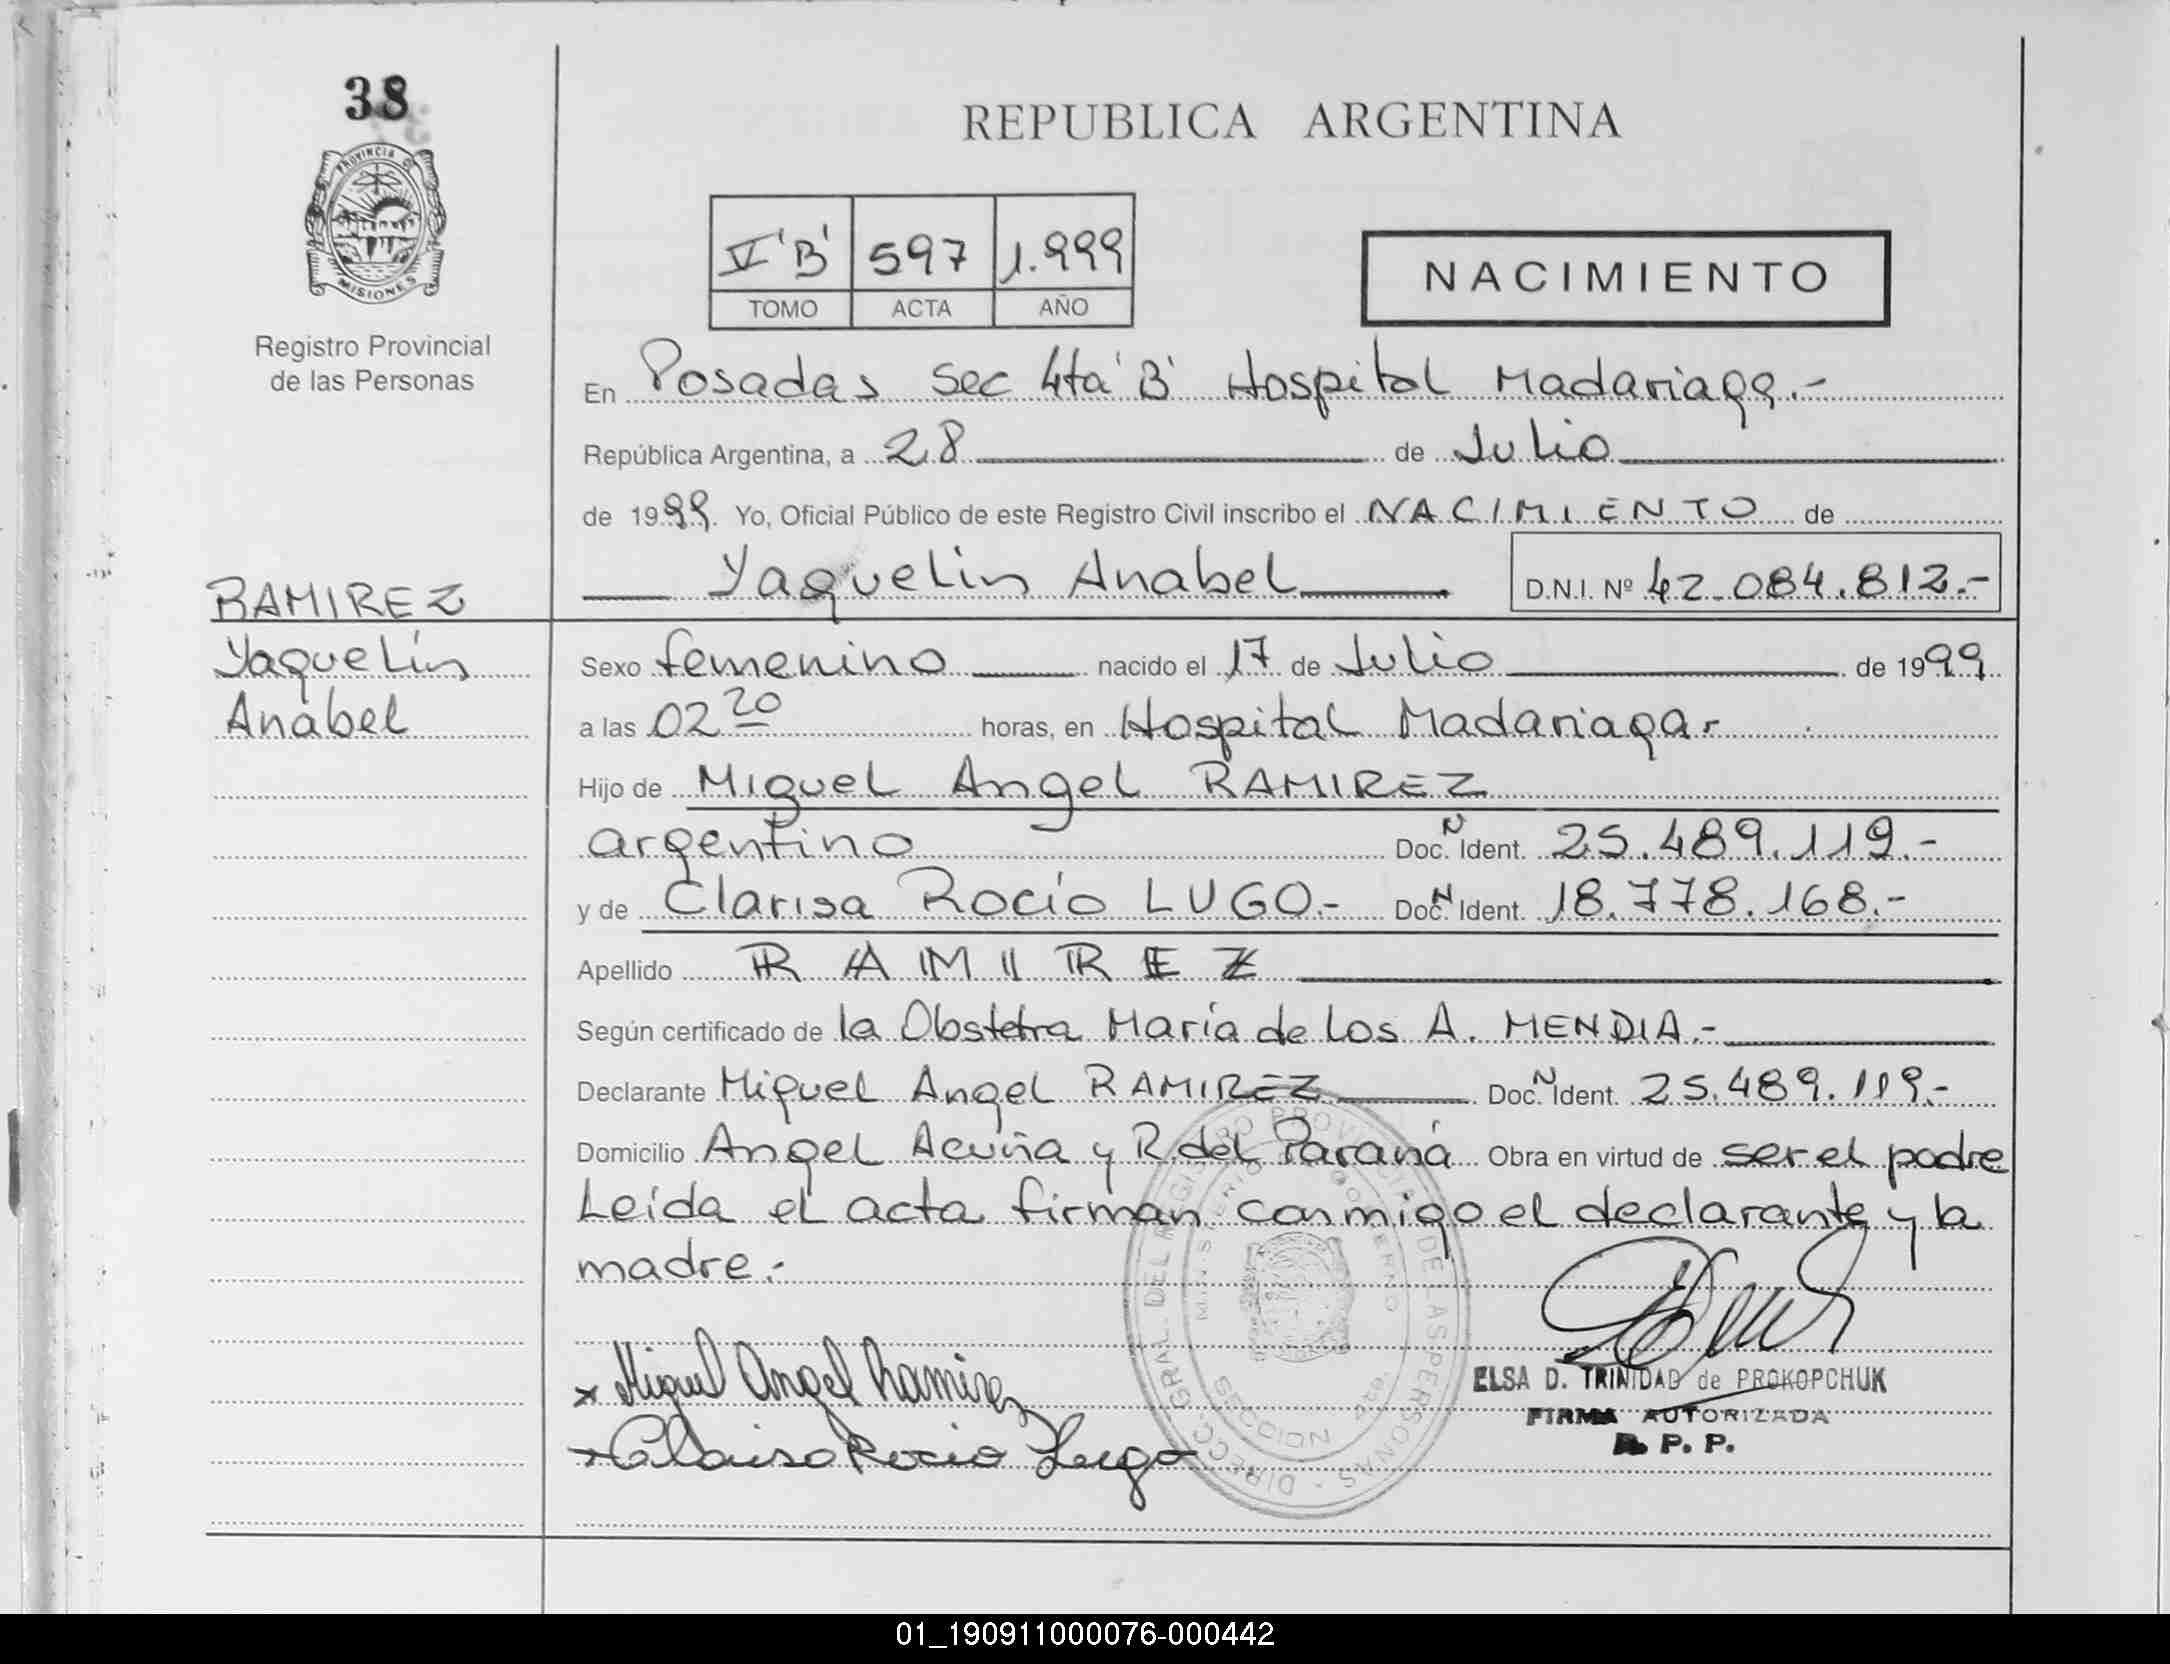 38
PROVINCIA DE
MISIONES
Registro Provincial
de las Personas
REPUBLICA ARGENTINA
V 'B' 597 1.999
TOMO ACTA AÑO
NACIMIENTO
En Posadas Sec 4ta 'B' Hospital Madariaga.-
República Argentina, a 28 de Julio
de 1999. Yo, Oficial Público de este Registro Civil inscribo el NACIMIENTO de
Yaquelin Anabel D.N.I. Nº 42.084.812.-
RAMIREZ
Yaquelin
Anabel
Sexo femenino nacido el 17 de Julio de 1999
a las 02 20 horas, en Hospital Madariaga.-
Hijo de Miguel Angel RAMIREZ
argentino Doc. N Ident. 25.489.119.-
y de Clarisa Rocío LUGO.- Doc. N Ident. 18.778.168.-
Apellido RAMIREZ
Según certificado de la Obstetra María de Los A. MENDIA.-
Declarante Miguel Angel RAMIREZ Doc. N Ident. 25.489.119.-
Domicilio Angel Acuña y R. del Paraná Obra en virtud de ser el padre
Leída el acta firman conmigo el declarante y la
madre.-
x Miguel Angel Ramirez
x Clarisa Rocio Lugo
DIRECC. GRAL. DEL REGISTRO PROVINCIAL DE LAS PERSONAS -
MINISTERIO DE GOBIERNO
SECCION 4ta.
ELSA D. TRINIDAD de PROKOPCHUK
FIRMA AUTORIZADA
R. P. P.
01_190911000076-000442